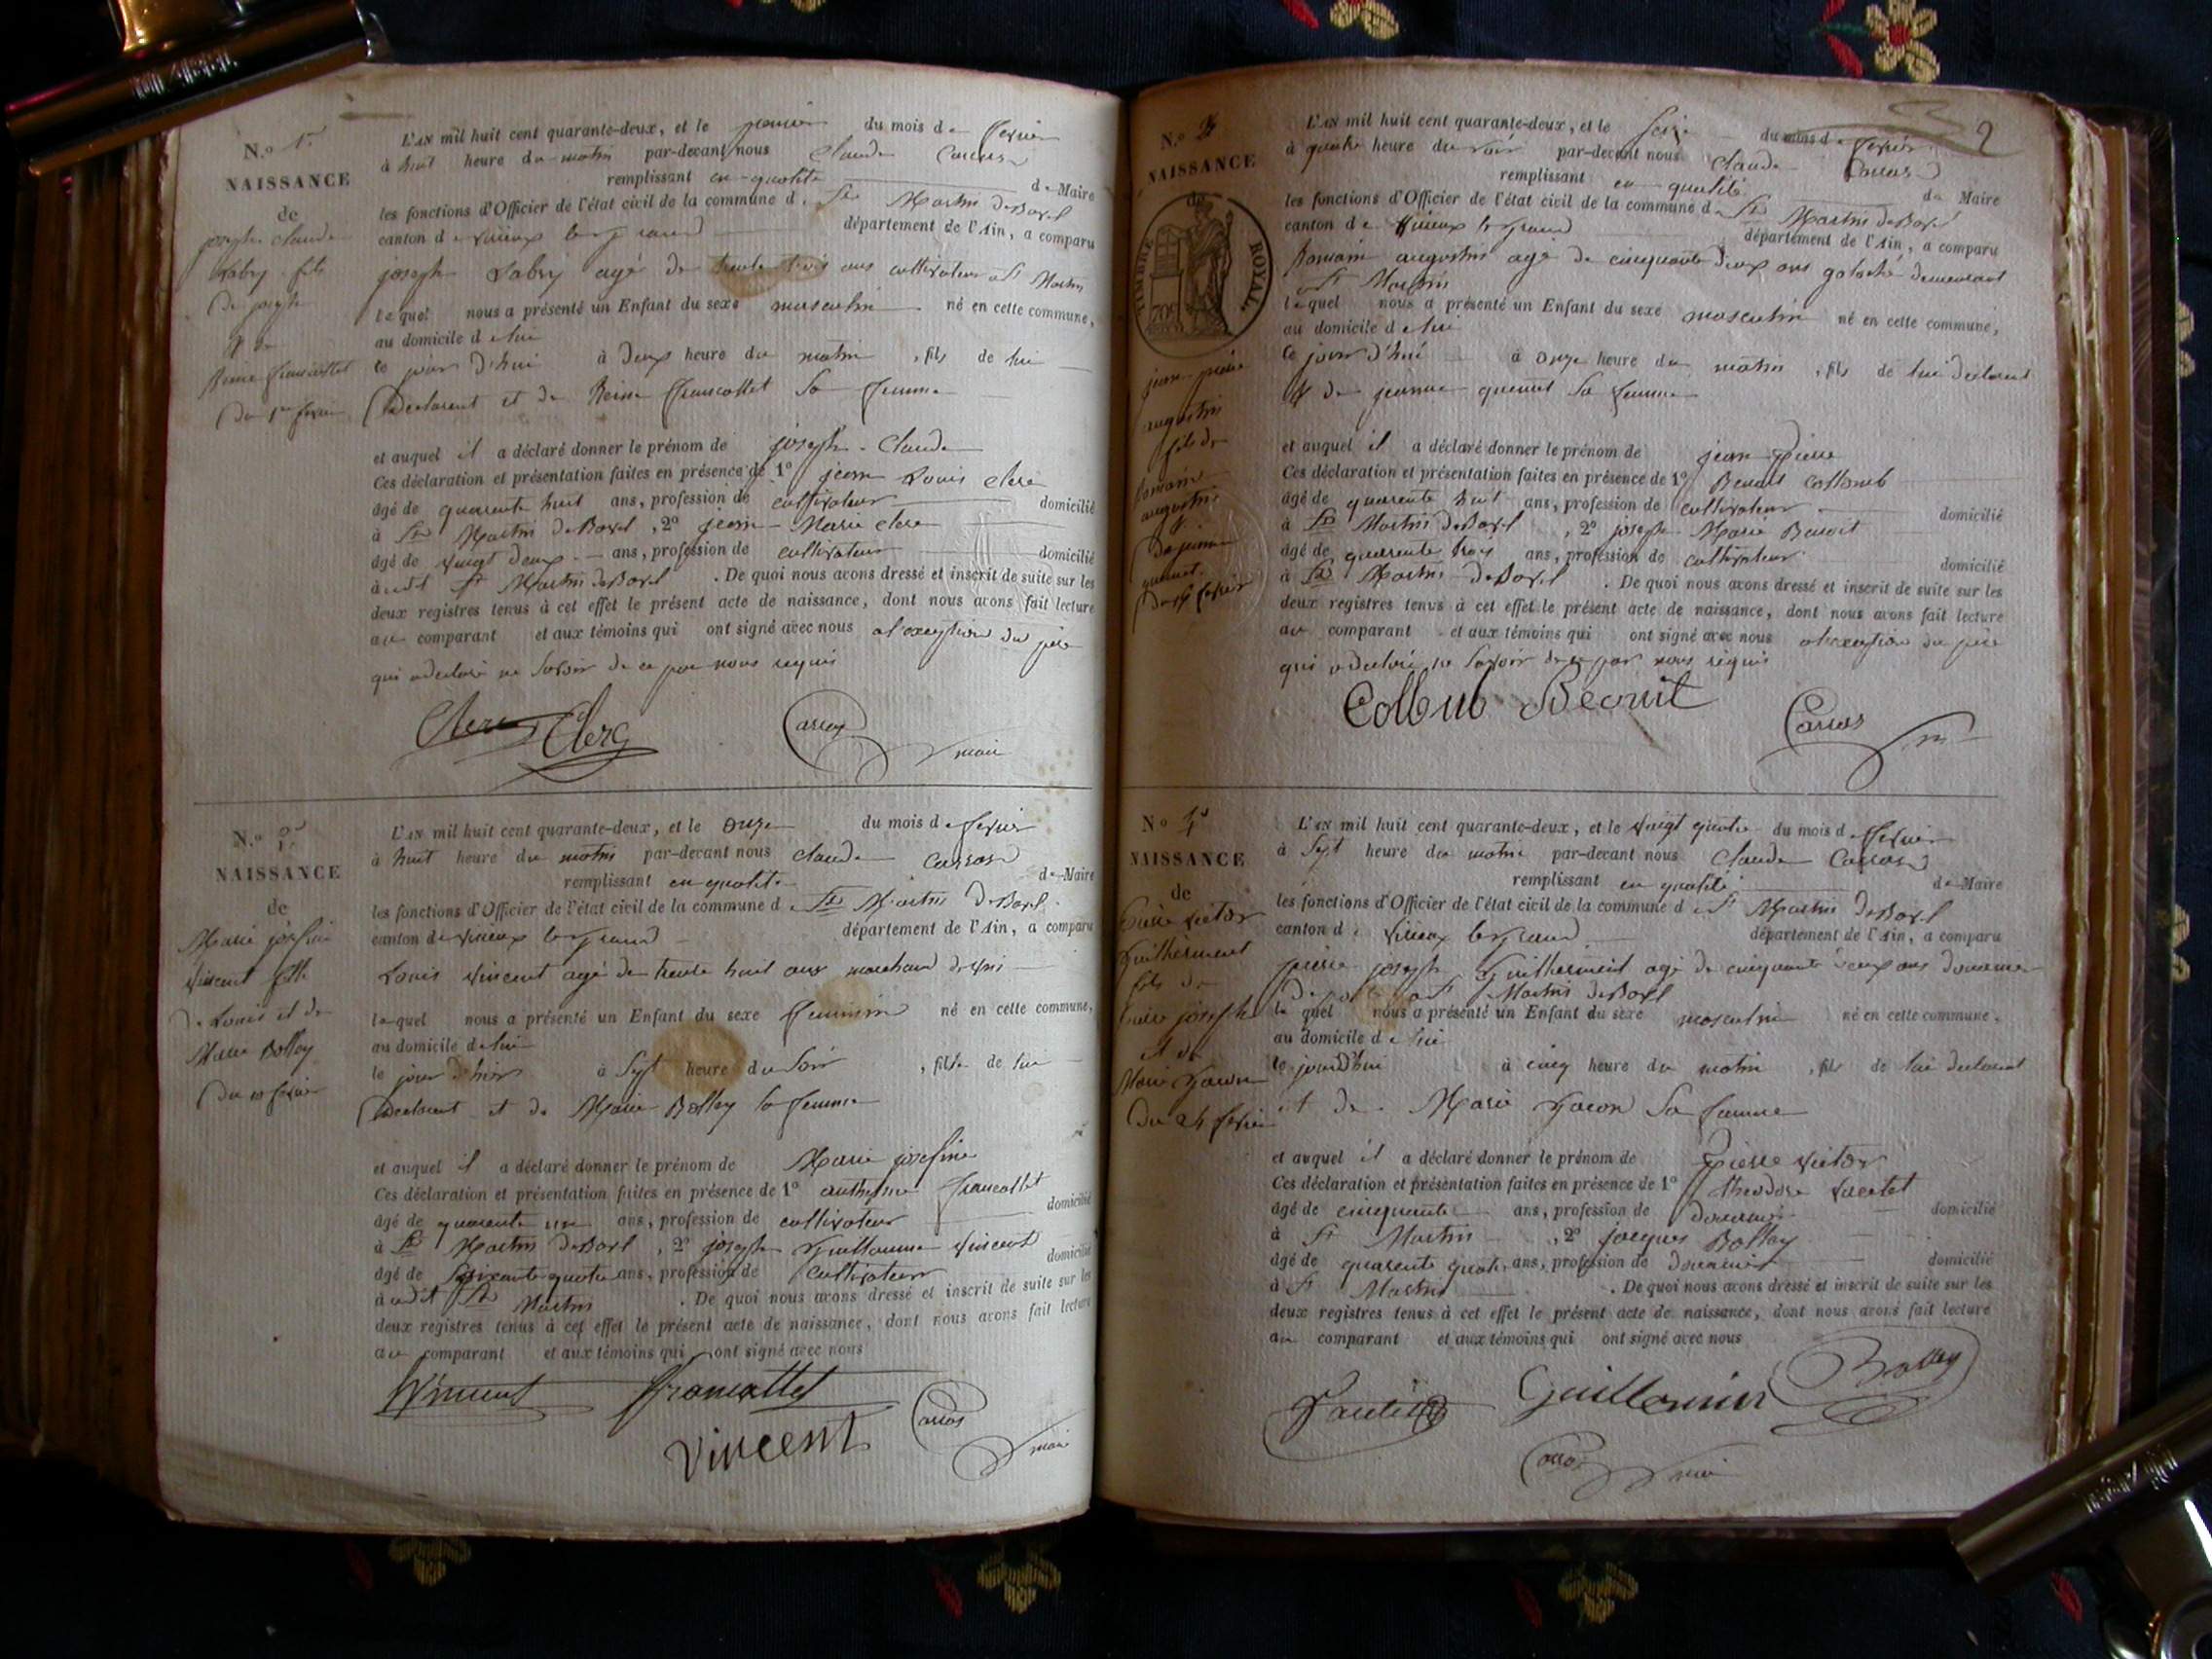 N.o 1er
NAISSANCE
de
joseph Claude
Labry fils
de joseph
& de
Reine francottet
du 1er fevrier
L'AN mil huit cent quarante-deux, et le premier du mois de fevrier
à huit heure du matin par-devant nous Claude Carras
remplissant en qualité de Maire
les fonctions d'Officier de l'état civil de la commune de St Martin de Bavel
canton de virieux le grand département de l'Ain, a comparu
joseph Labry agé de trente trois ans cultivateur a St Martin
lequel nous a présenté un Enfant du sexe masculin né en cette commune,
au domicile de lui
ce jour d'hui à deux heure du matin, fils de lui
Declarent et de Reine francottet Sa femme
et auquel il a déclaré donner le prénom de joseph Claude
Ces déclaration et présentation faites en présence de 1o jean Louis Clerc
âgé de quarente huit ans, profession de cultivateur domicilié
à St Martin de Bavel, 2o jean Marie Clerc
âgé de vingt deux ans, profession de cultivateur domicilié
à udit St Martin de Bavel. De quoi nous avons dressé et inscrit de suite sur les
deux registres tenus à cet effet le présent acte de naissance, dont nous avons fait lecture
au comparant et aux témoins qui ont signé avec nous a l'exception du père
qui a declaré ne Savoir de ce par nous requis
Clerc Clerc Carras maire
N.o 2
NAISSANCE
de
Marie josefine
vincent fille
de Louis et de
Marie Bolley
du 10 fevrier
L'AN mil huit cent quarante-deux, et le onze du mois de fevrier
à huit heure du matin par-devant nous Claude Carras
remplissant en qualité de Maire
les fonctions d'Officier de l'état civil de la commune de St Martin de Bavel
canton de virieux le grand département de l'Ain, a comparu
Louis vincent agé de trente huit ans marchand de vin
lequel nous a présenté un Enfant du sexe feminin né en cette commune,
au domicile de lui
le jour d'hier à Sept heure du Soir, fille de lui
Declarent et de Marie Bolley Sa femme
et auquel il a déclaré donner le prénom de Marie josefine
Ces déclaration et présentation faites en présence de 1o anthelme francottet
âgé de quarente un ans, profession de cultivateur domicilié
à St Martin de Bavel, 2o joseph Guillaume vincent
âgé de Soixante quatre ans, profession de cultivateur domicilié
à udit St Martin. De quoi nous avons dressé et inscrit de suite sur les
deux registres tenus à cet effet le présent acte de naissance, dont nous avons fait lecture
au comparant et aux témoins qui ont signé avec nous
Vincent francottet
vincent Carras maire
2
N.o 3
NAISSANCE
de
TIMBRE ROYAL
70c
jean pierre
augustin
fils de
Romain
augustin
&
de jeanne
quenet
L'AN mil huit cent quarante-deux, et le Seize du mois de fevrier
à quatre heure du soir par-devant nous Claude Carras
remplissant en qualité de Maire
les fonctions d'Officier de l'état civil de la commune de St Martin de Bavel
canton de virieux le grand département de l'Ain, a comparu
Romain augustin agé de cinquante deux ans demeurant
a St Martin
lequel nous a présenté un Enfant du sexe masculin né en cette commune,
au domicile de lui
ce jour d'hui à onze heure du matin, fils de lui declarent
& de jeanne quenet Sa femme
et auquel il a déclaré donner le prénom de jean pierre
Ces déclaration et présentation faites en présence de 1o Benoit Collomb
âgé de quarente huit ans, profession de cultivateur domicilié
à St Martin de Bavel, 2o joseph Marie Benoit
âgé de quarente trois ans, profession de cultivateur domicilié
à St Martin de Bavel. De quoi nous avons dressé et inscrit de suite sur les
deux registres tenus à cet effet le présent acte de naissance, dont nous avons fait lecture
au comparant et aux témoins qui ont signé avec nous a l'exception du père
qui a declaré ne Savoir de ce par nous requis
Carras
N.o 4
NAISSANCE
de
Pierre victor
Guilherminet
fils de
Pierre joseph
et de
Marie
du 24 fevrier
L'AN mil huit cent quarante-deux, et le vingt quatre du mois de fevrier
à Sept heure du matin par-devant nous Claude Carras
remplissant en qualité de Maire
les fonctions d'Officier de l'état civil de la commune de St Martin de Bavel
canton de virieux le grand département de l'Ain, a comparu
pierre joseph Guilherminet agé de cinquante deux ans
a St Martin de Bavel
lequel nous a présenté un Enfant du sexe masculin né en cette commune,
au domicile de lui
ce jourd'hui à cinq heure du matin, fils de lui declarent
et de Marie Sa femme
et auquel il a déclaré donner le prénom de Pierre victor
Ces déclaration et présentation faites en présence de 1o theodore
âgé de cinquante ans, profession de domicilié
à St Martin, 2o jacques Bolley
âgé de quarente quatre ans, profession de domicilié
à St Martin. De quoi nous avons dressé et inscrit de suite sur les
deux registres tenus à cet effet le présent acte de naissance, dont nous avons fait lecture
au comparant et aux témoins qui ont signé avec nous
Bolley
Carras maire